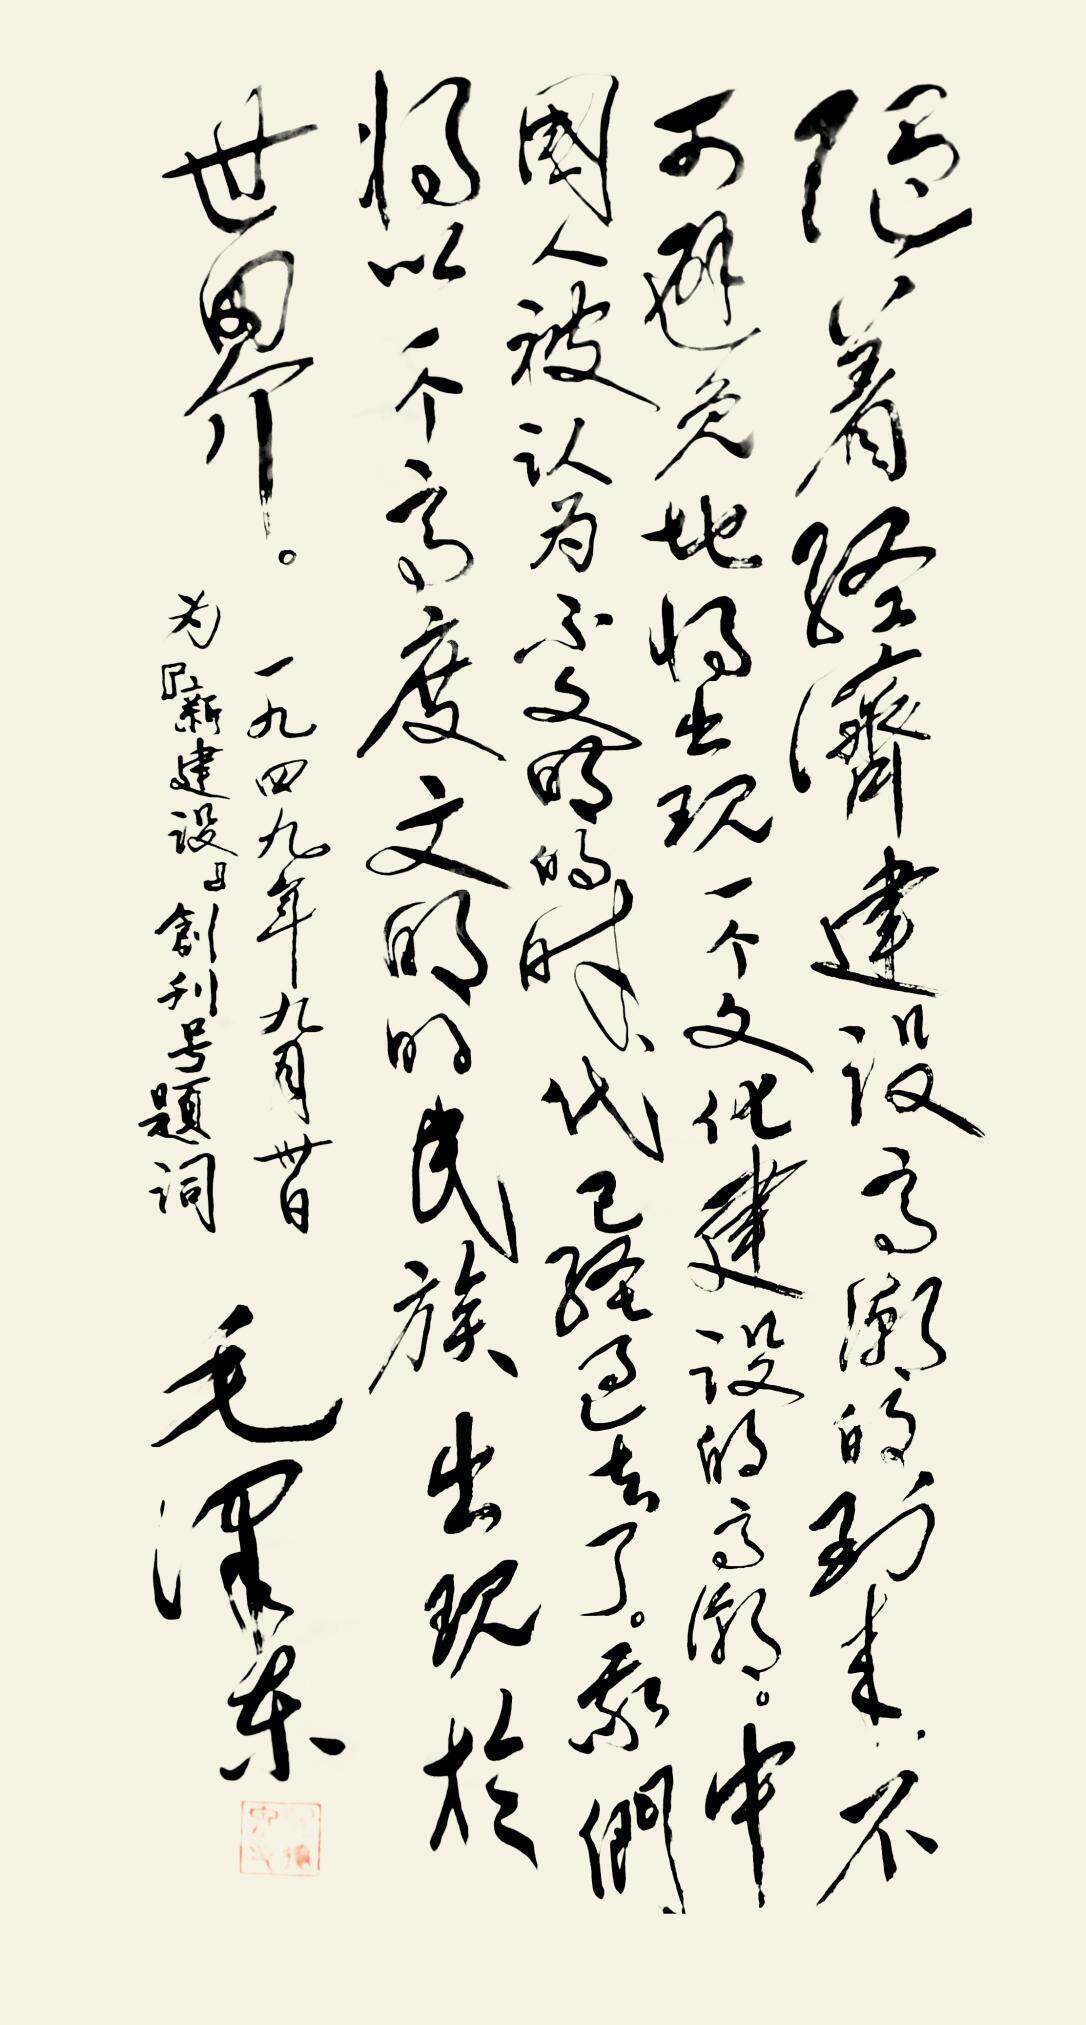 随着经濟建设高潮的到来,不
可避免地将出现一个文化建设的高潮。中
國人被认为不文明的时代已经过去了。我們
将以一个高度文明的民族出现於
世界。
一九四九年九月卅日
为『新建设』創刊号題词
毛澤东